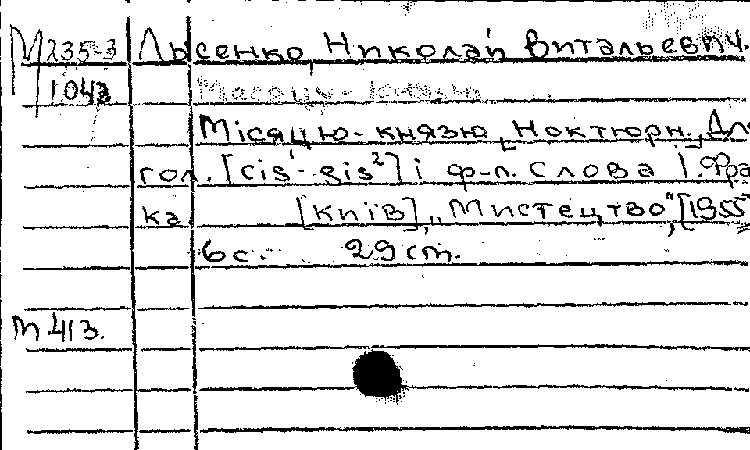 М 235-3 Лысенко, Николай Витальевич.
1043 Місяцю-князю
Місяцю-князю, Ноктюрн, Для
гол. [cis¹-gis²] і ф-п. Слова І. Фра
ка. [Київ], „Мистецтво", [1955
6 с. 29 ст.
М 413.